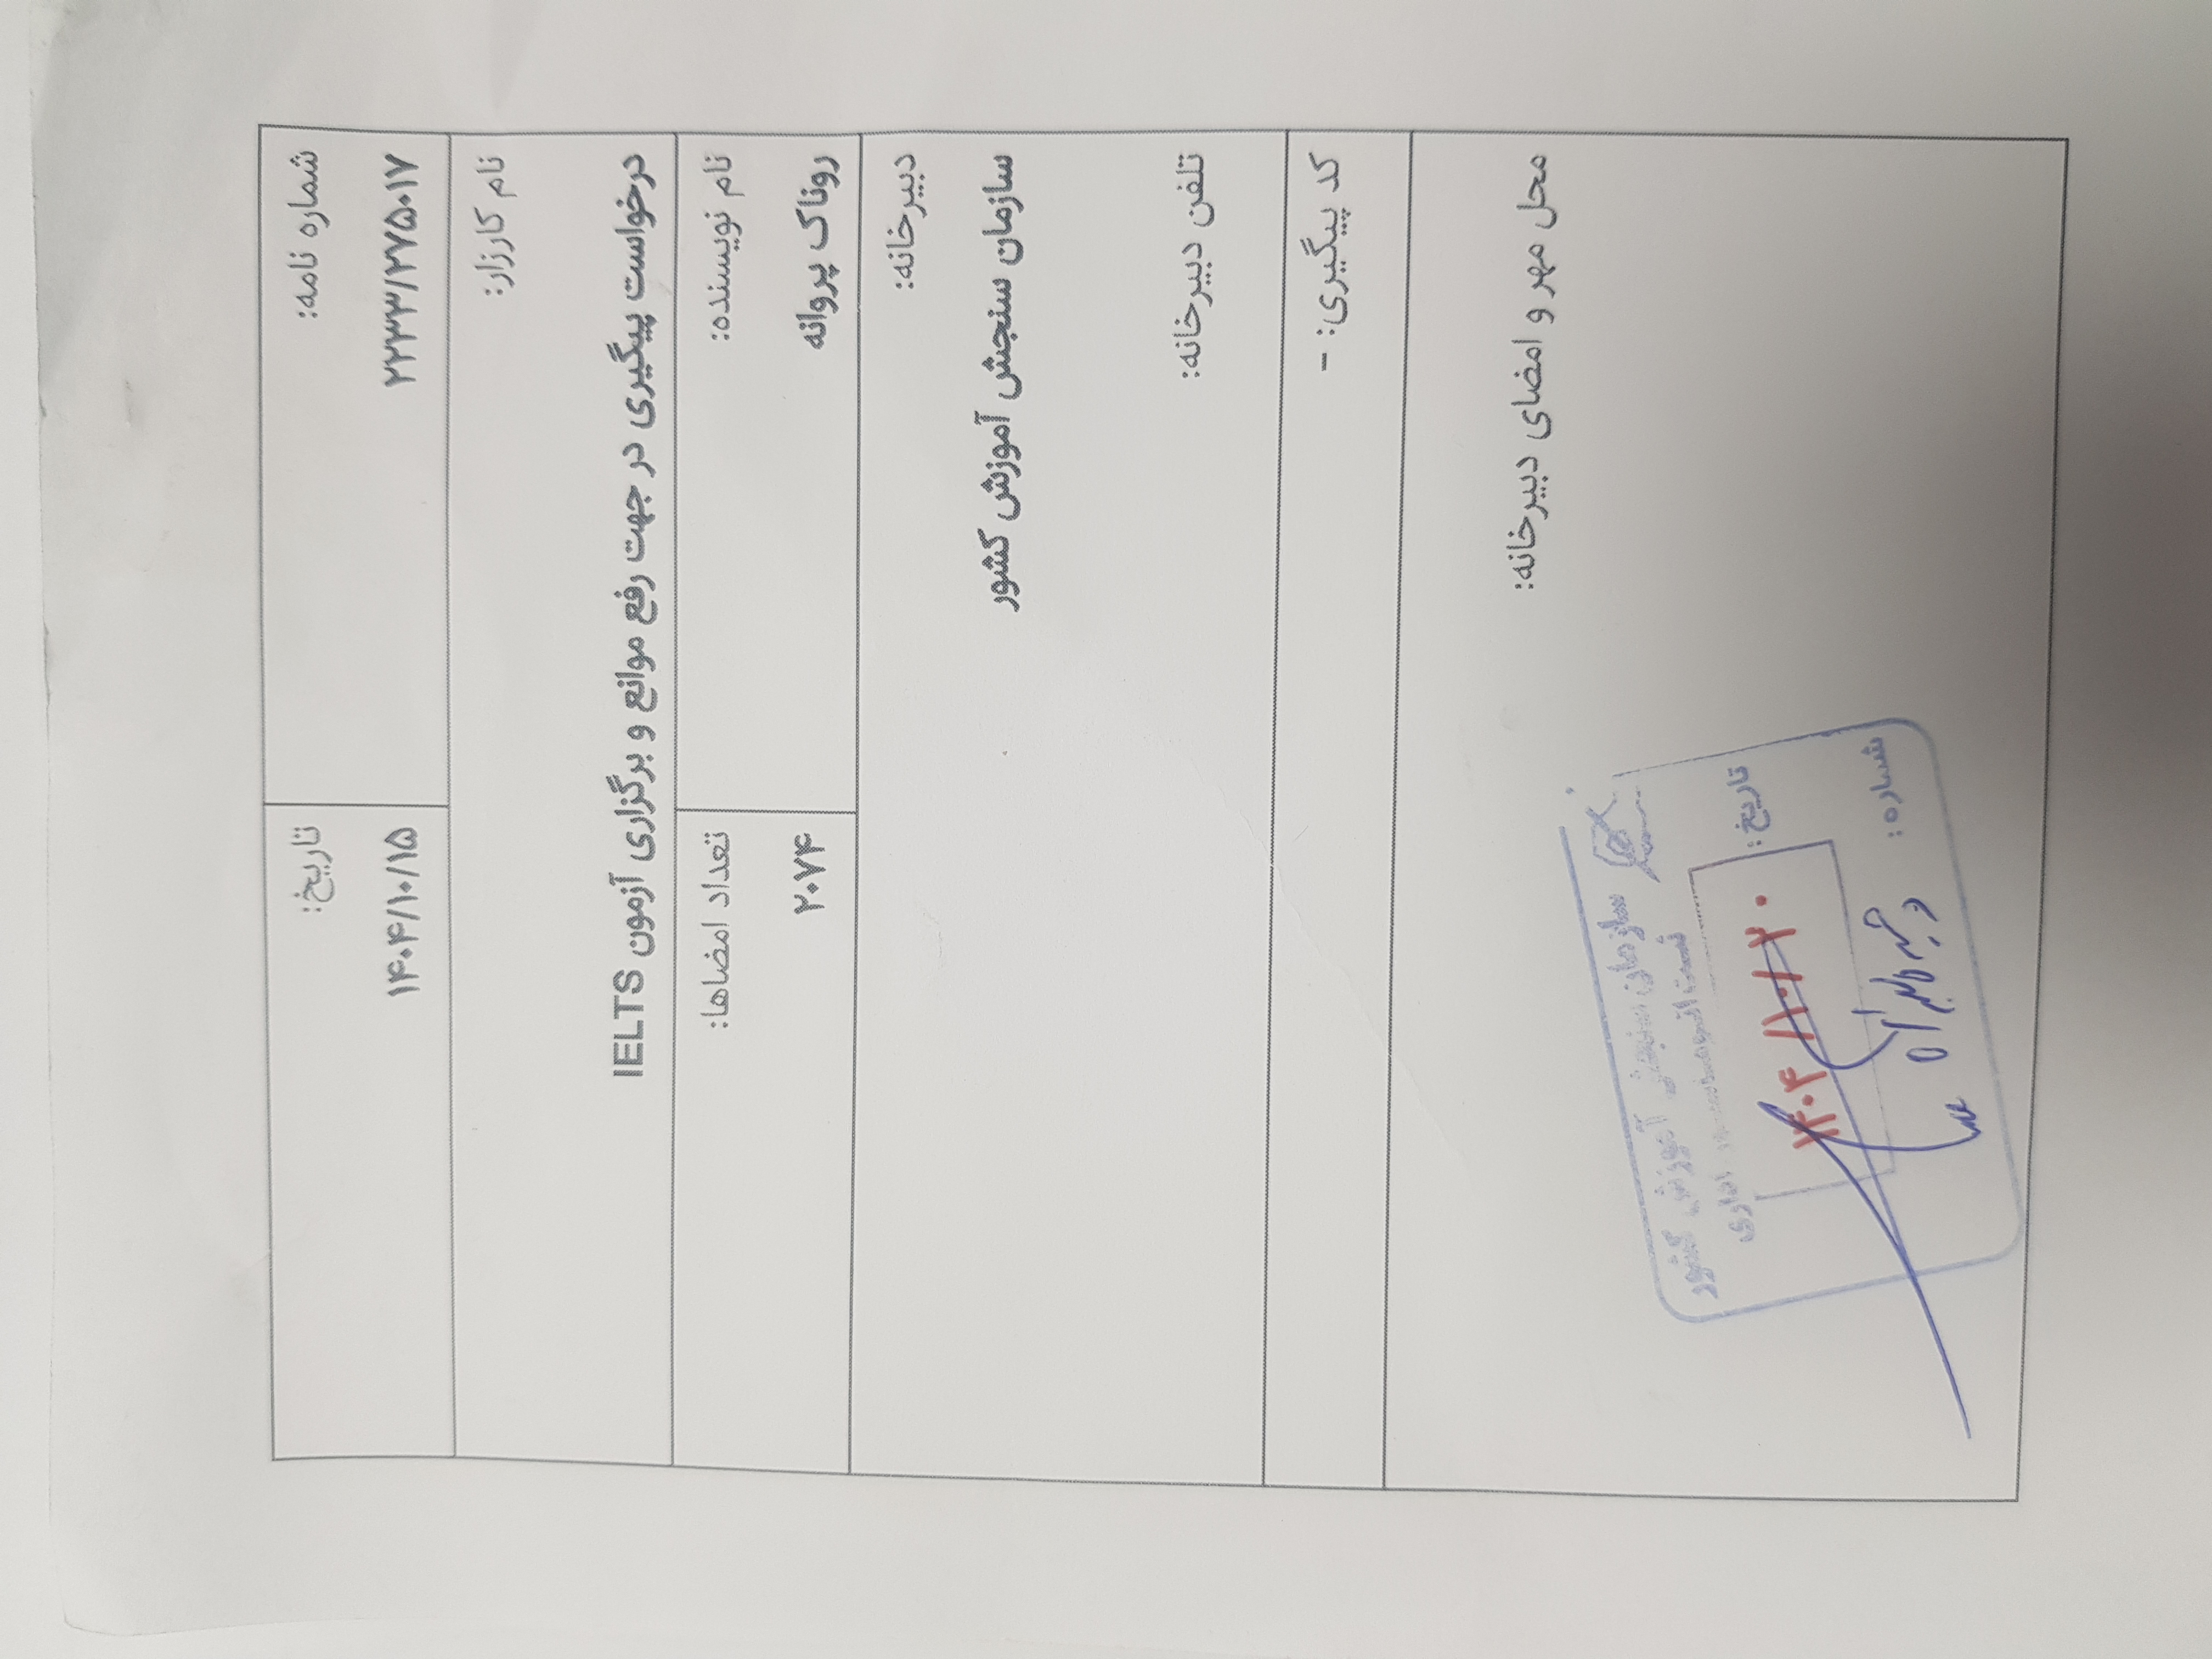 شماره نامه:
۲۲۳۳/۲۷۵۰۱۷
تاریخ:
۱۴۰۴/۱۰/۱۵
نام کارزار:
درخواست پیگیری در جهت رفع موانع و برگزاری آزمون IELTS
نام نویسنده:
روناک پروانه
تعداد امضاها:
۲۰۷۴
دبیرخانه:
سازمان سنجش آموزش کشور
تلفن دبیرخانه:
کد پیگیری: -
محل مهر و امضای دبیرخانه:
سازمان سنجش آموزش کشور
اداری
تاریخ:
۱۴۰۴/۱۰/۲۰
شماره: